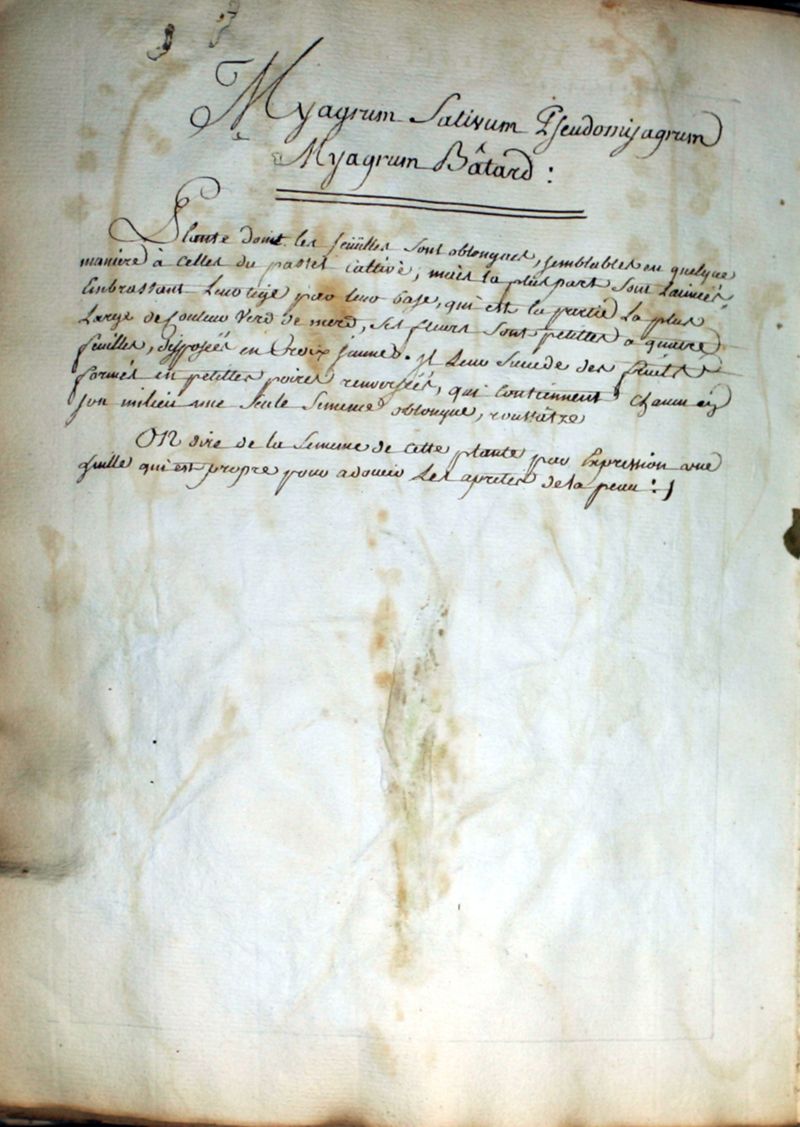 Myagrum Sativum Pseudomijagrum
Myagrum Bâtard :
Plante dont les feüilles sont oblongues, semblables en quelque
maniere à celles du pastel cultivé, mais la plus part sont
Embrassant leur tige par leur base, qui est la partie la plus
Large de Couleur verd de mer, ses fleurs sont petittes a quatre
feuilles, disposées en Croix jaune. il leur succède des fruits
formés en petittes poires renversées, qui contiennent chacun en
son milieu une seule semence oblongue, roussâtre
On tire de la semence de cette plante par Expression une
huille qui est propre pour adoucir les apretés de la peau :